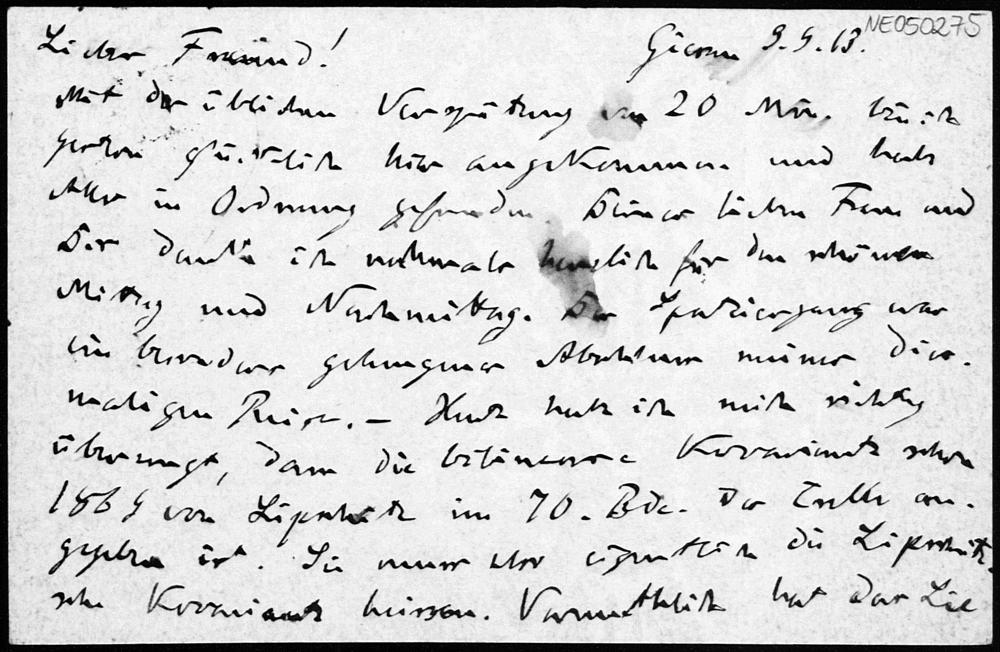 NE050275
Lieber Freund! Giessen 9.5.13.
Mit der üblichen Verspätung von 20 Min. bin ich
gestern glücklich hier angekommen und habe
Alles in Ordnung gefunden. Deiner lieben Frau und
Dir danke ich nochmals herzlich für den schönen
Mittag und Nachmittag. Der Spaziergang war
ein besonders gelungener Abschluss meiner dies-
maligen Reise. – Heute habe ich mich richtig
überzeugt, dass die bilineare Kovariante schon
1869 von Lipschitz im 70. Bde. des Crelle an-
gegeben ist. Sie muss also eigentlich die Lipschitz-
sche Kovariante heissen. Vermuthlich hat das Lie